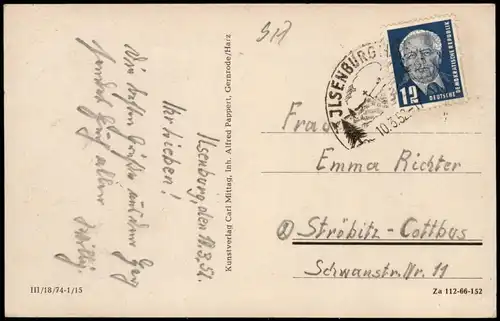 Ilsenburg, den 10.3.52.
Ihr Lieben!
Die besten Grüße aus dem Harz
sendet Euch allen
Willy.
Kunstverlag Carl Mittag, Inh. Alfred Pappert, Gernrode/Harz
ILSENBURG
10.3.52
12
DEUTSCHE
DEMOKRATISCHE REPUBLIK
Frau
Emma Richter
Ströbitz-Cottbus
Schwanstr. Nr. 11
III/18/74-1/15
Za 112-66-152